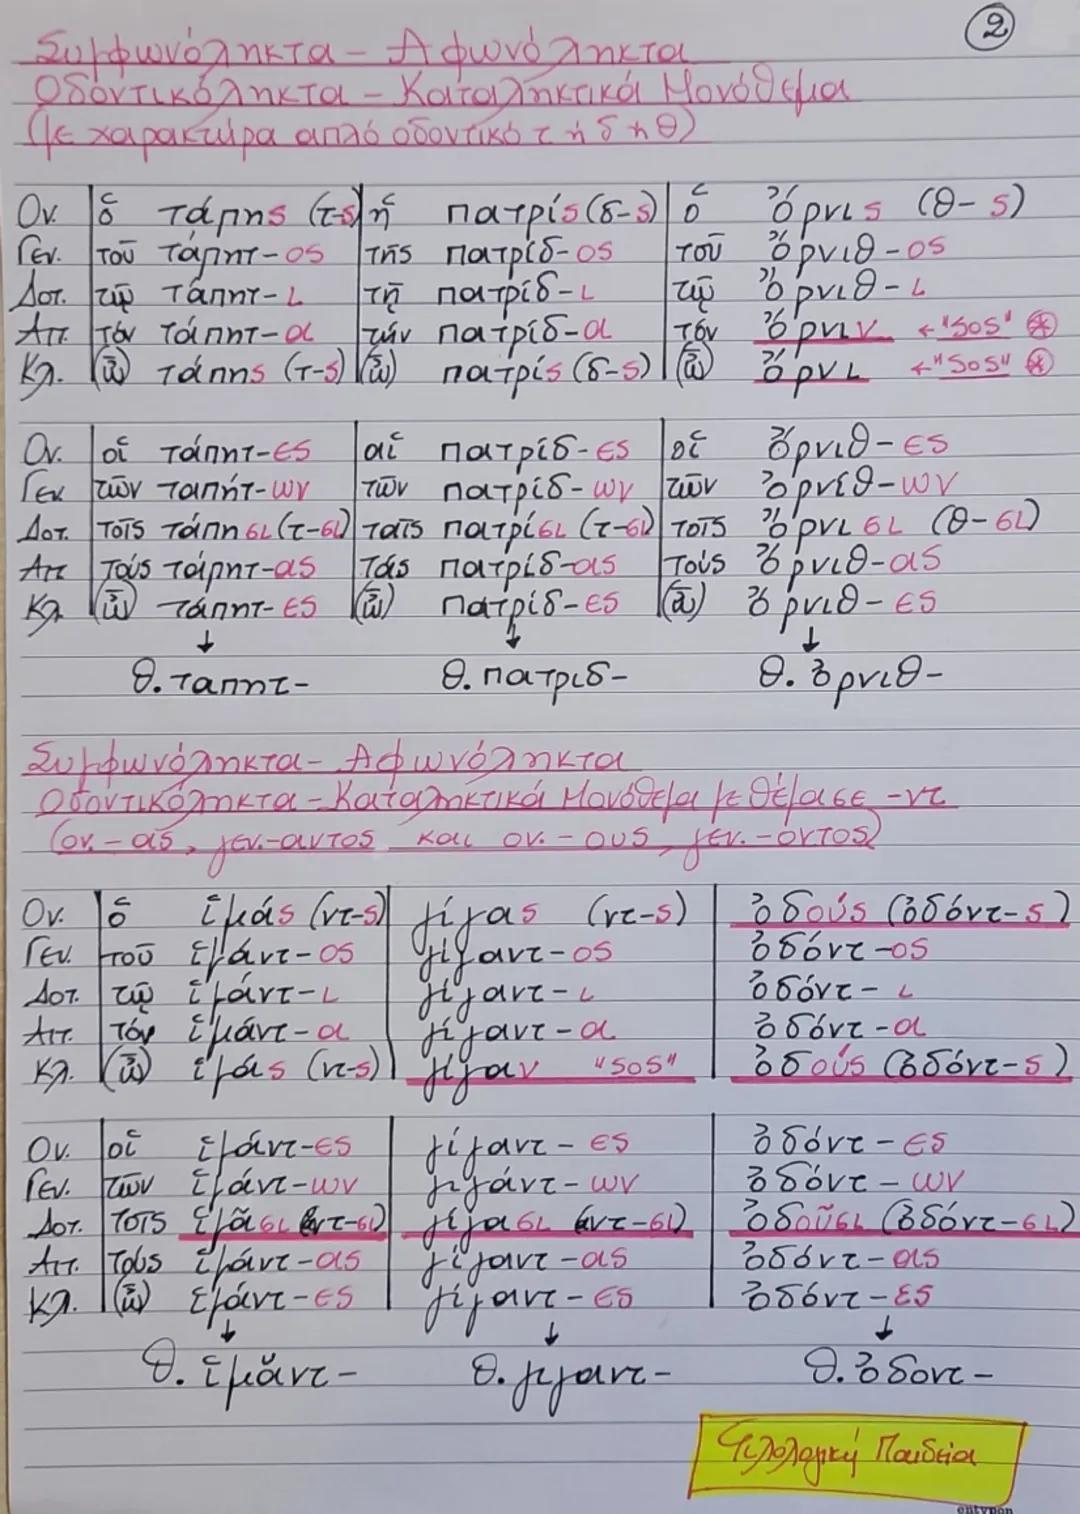 ②
Συμφωνόληκτα - Αφωνόληκτα
Οδοντικόληκτα - Καταληκτικά Μονόθεμα
(με χαρακτήρα απλό οδοντικό τ ή δ ή θ)
Ον. ὁ τάπης (τ-ς) ἡ πατρίς (δ-ς) ὁ ὄρνις (θ-ς)
Γεν. τοῦ τάπητ-ος τῆς πατρίδ-ος τοῦ ὄρνιθ-ος
Δοτ. τῷ τάπητ-ι τῇ πατρίδ-ι τῷ ὄρνιθ-ι
Αιτ. τόν τάπητ-α τήν πατρίδ-α τόν ὄρνιν ←"SOS" ⊛
Κλ. (ὦ) τάπης (τ-ς) (ὦ) πατρίς (δ-ς) (ὦ) ὄρνι ←"SOS" ⊛
Ον. οἱ τάπητ-ες αἱ πατρίδ-ες οἱ ὄρνιθ-ες
Γεν. τῶν ταπήτ-ων τῶν πατρίδ-ων τῶν ὀρνίθ-ων
Δοτ. τοῖς τάπησι (τ-σι) ταῖς πατρίσι (τ-σι) τοῖς ὄρνισι (θ-σι)
Αιτ. τούς τάπητ-ας τάς πατρίδ-ας τούς ὄρνιθ-ας
Κλ. (ὦ) τάπητ-ες (ὦ) πατρίδ-ες (ὦ) ὄρνιθ-ες
↓ ↓ ↓
θ. ταπητ- θ. πατριδ- θ. ὀρνιθ-
Συμφωνόληκτα - Αφωνόληκτα
Οδοντικόληκτα - Καταληκτικά Μονόθεμα με θέμα σε -ντ
(ον. -ας, γεν. -αντος και ον. -ους, γεν. -οντος)
Ον. ὁ ἱμάς (ντ-ς) γίγας (ντ-ς) ὀδούς (ὀδόντ-ς)
Γεν. τοῦ ἱμάντ-ος γίγαντ-ος ὀδόντ-ος
Δοτ. τῷ ἱμάντ-ι γίγαντ-ι ὀδόντ-ι
Αιτ. τόν ἱμάντ-α γίγαντ-α ὀδόντ-α
Κλ. (ὦ) ἱμάς (ντ-ς) γίγαν "SOS" ὀδούς (ὀδόντ-ς)
Ον. οἱ ἱμάντ-ες γίγαντ-ες ὀδόντ-ες
Γεν. τῶν ἱμάντ-ων γιγάντ-ων ὀδόντ-ων
Δοτ. τοῖς ἱμᾶσι (ντ-σι) γίγασι (ντ-σι) ὀδοῦσι (ὀδόντ-σι)
Αιτ. τούς ἱμάντ-ας γίγαντ-ας ὀδόντ-ας
Κλ. (ὦ) ἱμάντ-ες γίγαντ-ες ὀδόντ-ες
↓ ↓ ↓
θ. ἱμᾰντ- θ. γιγαντ- θ. ὀδοντ-
Φιλολογική Παιδεία
entypon